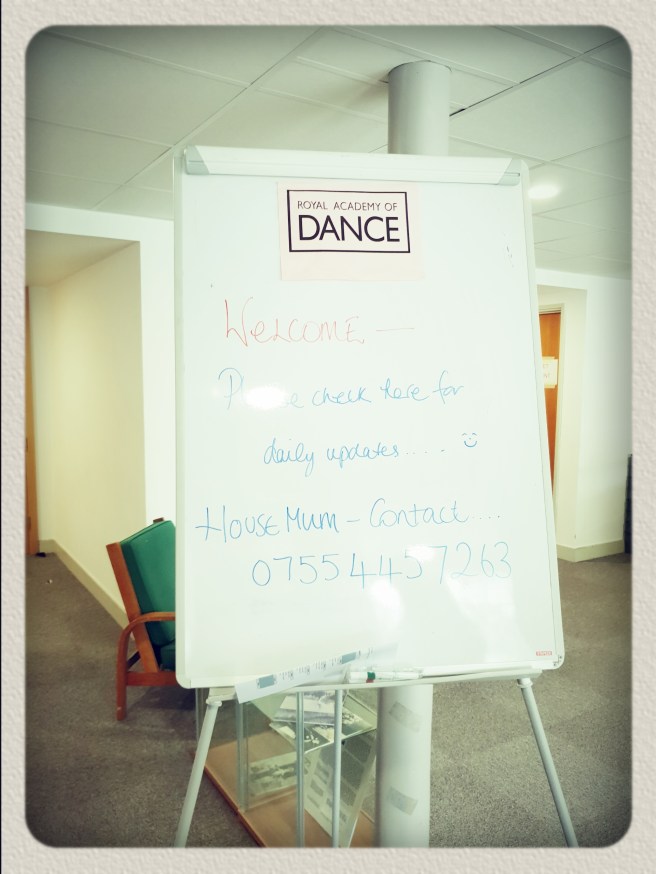 ROYAL ACADEMY OF
DANCE
WELCOME —
Please check here for
daily updates..... :)
HOUSE MUM - Contact....
07554457263